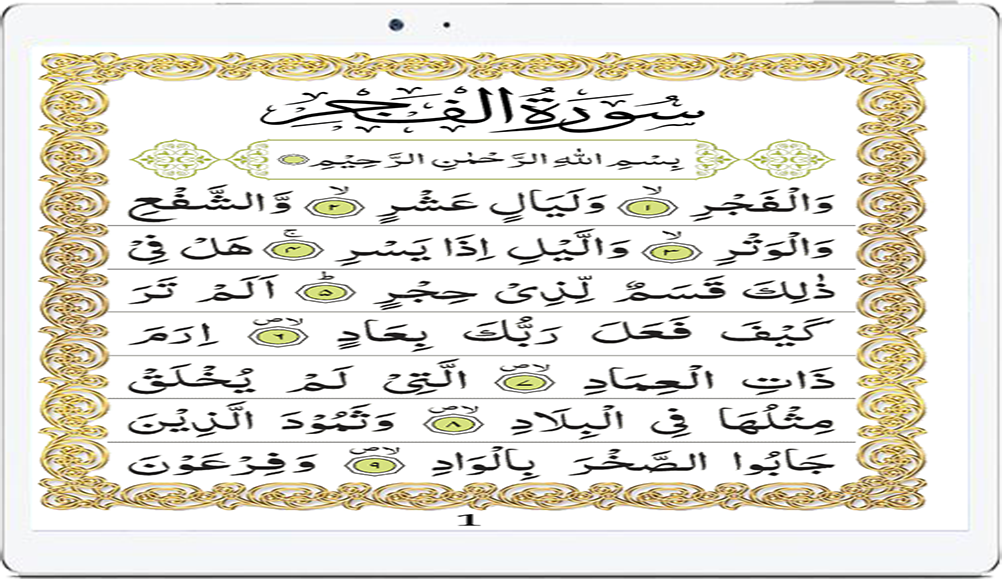 سُوْرَةُ الْفَجْرِ
بِسْمِ اللهِ الرَّحْمٰنِ الرَّحِيْمِ
وَالْفَجْرِ ۙ‏﴿۱﴾ وَلَيَالٍ عَشْرٍ ۙ‏﴿۲﴾ وَّالشَّفْعِ
وَالْوَتْرِ ۙ‏﴿۳﴾ وَالَّيْلِ اِذَا يَسْرِ ۚ‏﴿۴﴾ هَلْ فِىْ
ذٰلِكَ قَسَمٌ لِّذِىْ حِجْرٍ ؕ‏﴿۵﴾ اَلَمْ تَرَ
كَيْفَ فَعَلَ رَبُّكَ بِعَادٍ ۙ‏ص﴿۶﴾ اِرَمَ
ذَاتِ الْعِمَادِ ۙ‏ص﴿۷﴾ الَّتِىْ لَمْ يُخْلَقْ
مِثْلُهَا فِى الْبِلَادِ ۙ‏ص﴿۸﴾ وَثَمُوْدَ الَّذِيْنَ
جَابُوا الصَّخْرَ بِالْوَادِ ۙ‏ص﴿۹﴾ وَفِرْعَوْنَ
1